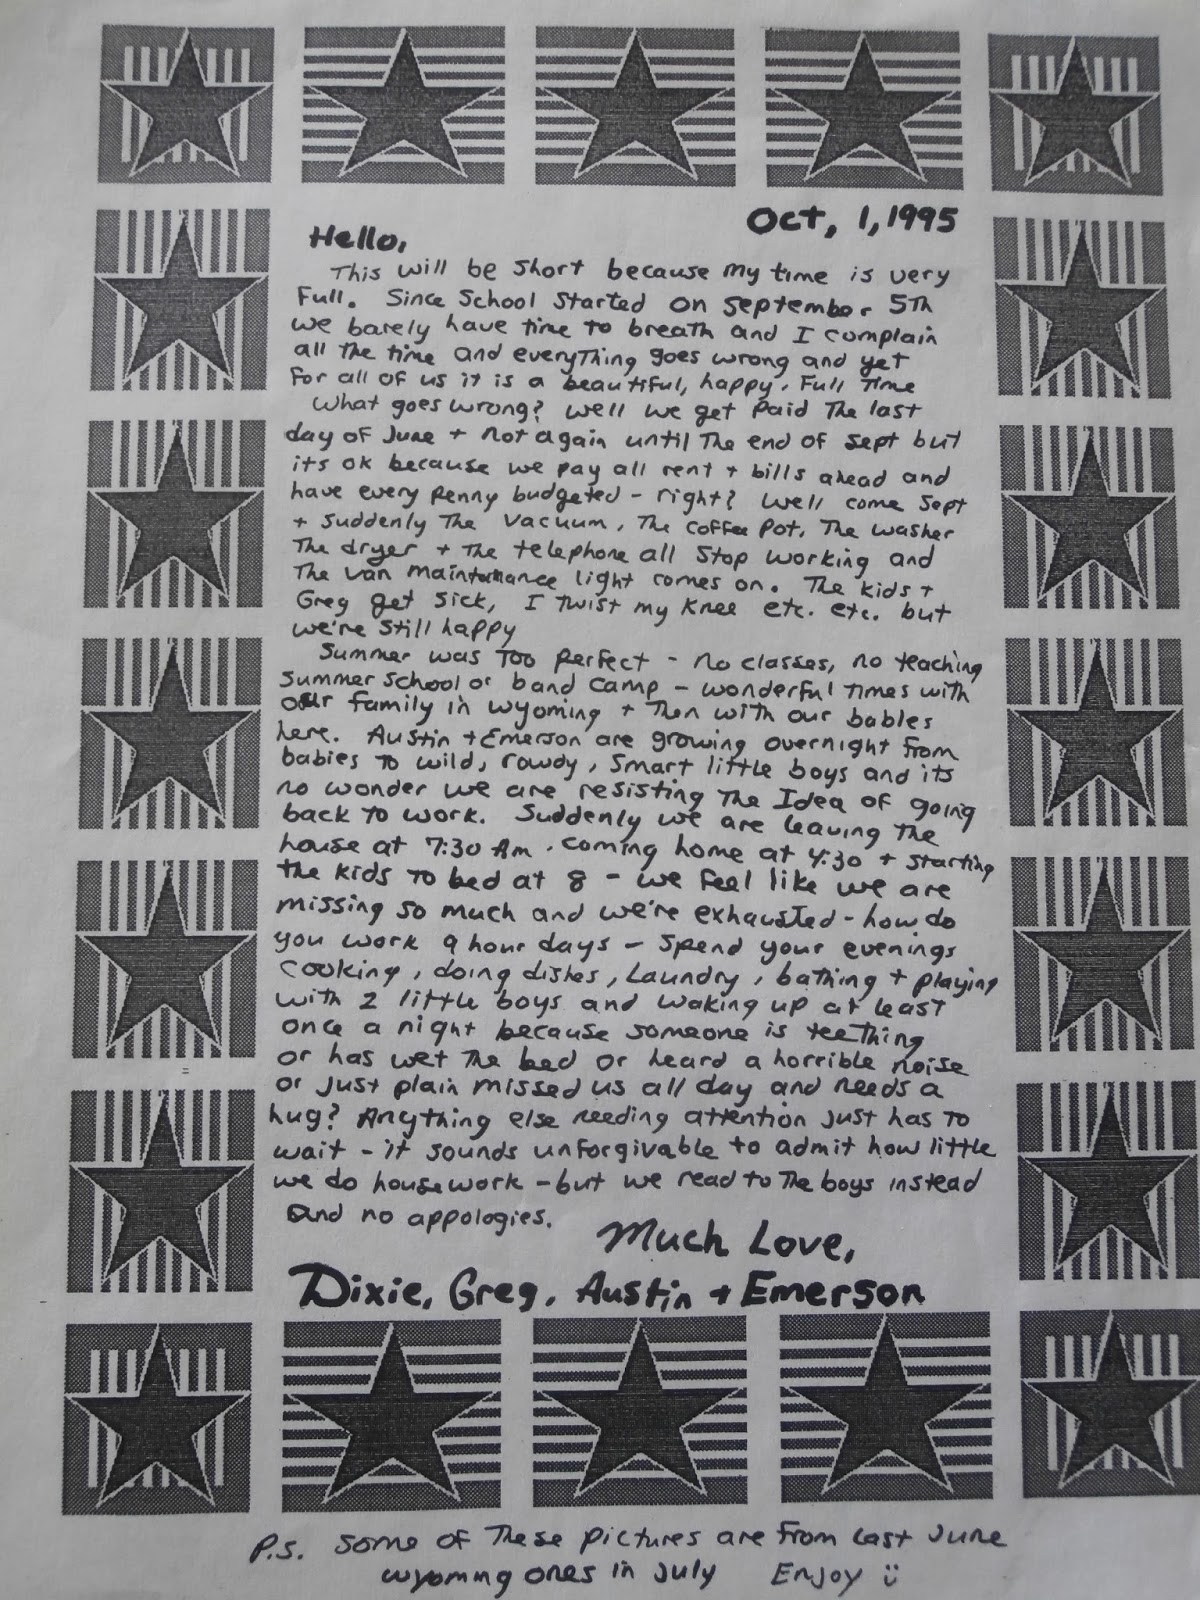 Oct, 1, 1995
Hello,
This will be short because my time is very
Full. Since School Started on September 5Th
we barely have time to breath and I complain
all the time and everything goes wrong and yet
For all of us it is a beautiful, happy, Full Time
What goes wrong? Well we get Paid The last
day of June + not again until The end of Sept but
its ok because we pay all rent + bills ahead and
have every Penny budgeted - right? Well come Sept
+ Suddenly The Vacuum, The Coffee Pot, The washer
The dryer + The telephone all Stop working and
The van maintenance light comes on. The kids +
Greg get Sick, I Twist my Knee etc. etc. but
we're still happy
Summer was Too Perfect - no classes, no teaching
Summer School or band camp - wonderful times with
our family in wyoming + Then with our babies
here. Austin + Emerson are growing overnight from
babies To wild, rowdy, Smart little boys and its
no wonder we are resisting The Idea of going
back To work. Suddenly we are leaving The
house at 7:30 Am. coming home at 4:30 + starting
the kids To bed at 8 - we feel like we are
missing so much and we're exhausted - how do
you work 9 hour days - Spend your evenings
cooking, doing dishes, Laundry, bathing + playing
with 2 little boys and waking up at least
once a night because someone is teething
or has wet The bed or heard a horrible noise
or just plain missed us all day and needs a
hug? Anything else needing attention just has To
wait - it sounds unforgivable to admit how little
we do housework - but we read to The boys instead
and no appologies.
Much Love,
Dixie, Greg, Austin + Emerson
P.S. Some of These pictures are From Last June
wyoming ones in July Enjoy ü